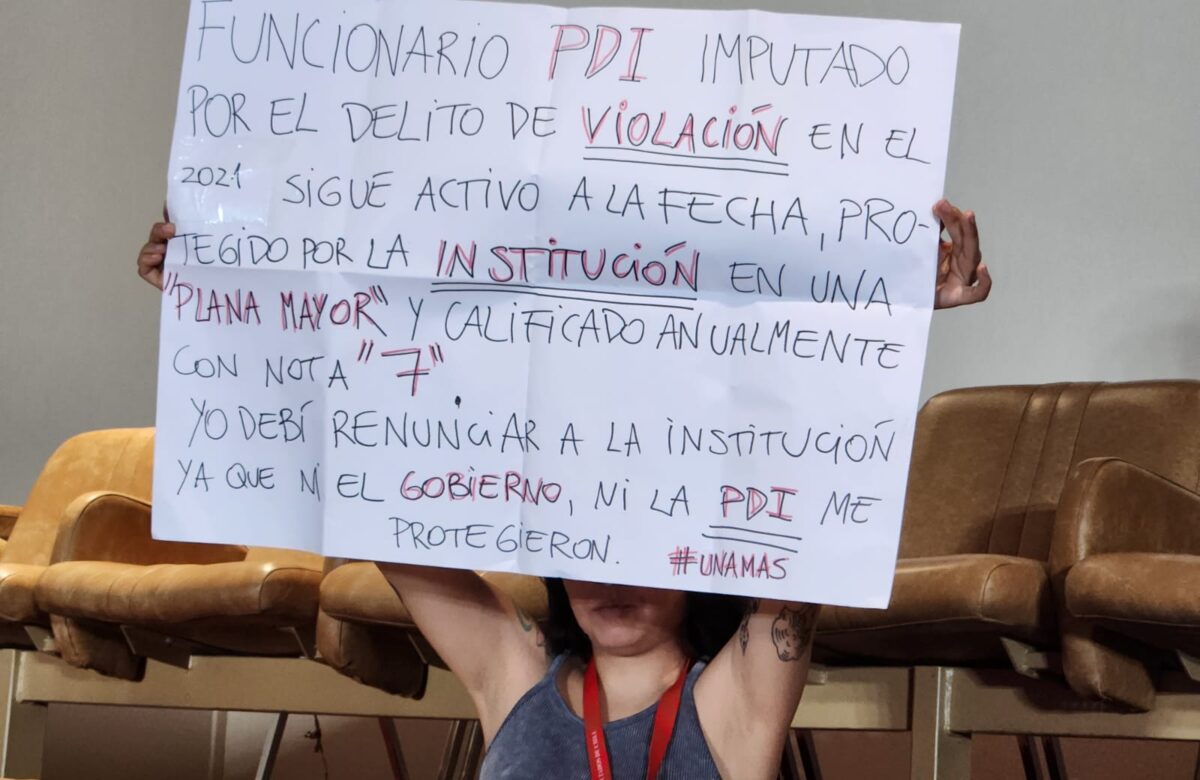 FUNCIONARIO PDI IMPUTADO
POR EL DELITO DE VIOLACIÓN EN EL
2021 SIGUE ACTIVO A LA FECHA, PRO-
TEGIDO POR LA INSTITUCIÓN EN UNA
"PLANA MAYOR" Y CALIFICADO ANUALMENTE
CON NOTA "7".
YO DEBÍ RENUNCIAR A LA INSTITUCIÓN
YA QUE NI EL GOBIERNO, NI LA PDI ME
PROTEGIERON. #UNAMAS